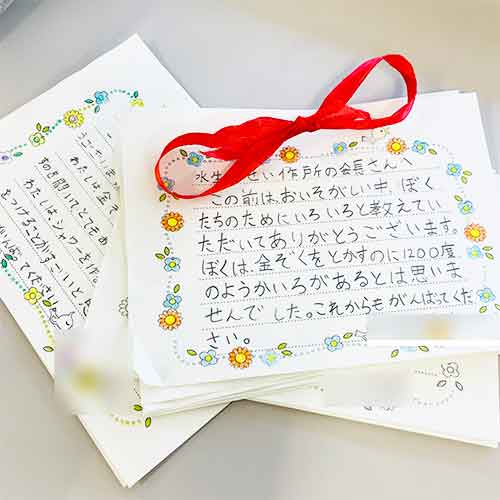 水生 せい作所の会長さんへ
この前は、おいそがしい中、ぼく
たちのためにいろいろと教えてい
ただいてありがとうございます。
ぼくは、金ぞくをとかすのに1200度
のようかいろがあるとは思いま
せんでした。これからもがんばってくだ
さい。
わたしは、金ぞ
すめ聞いてとても
わたしは、シャワーを作
をつけることがすごーいと